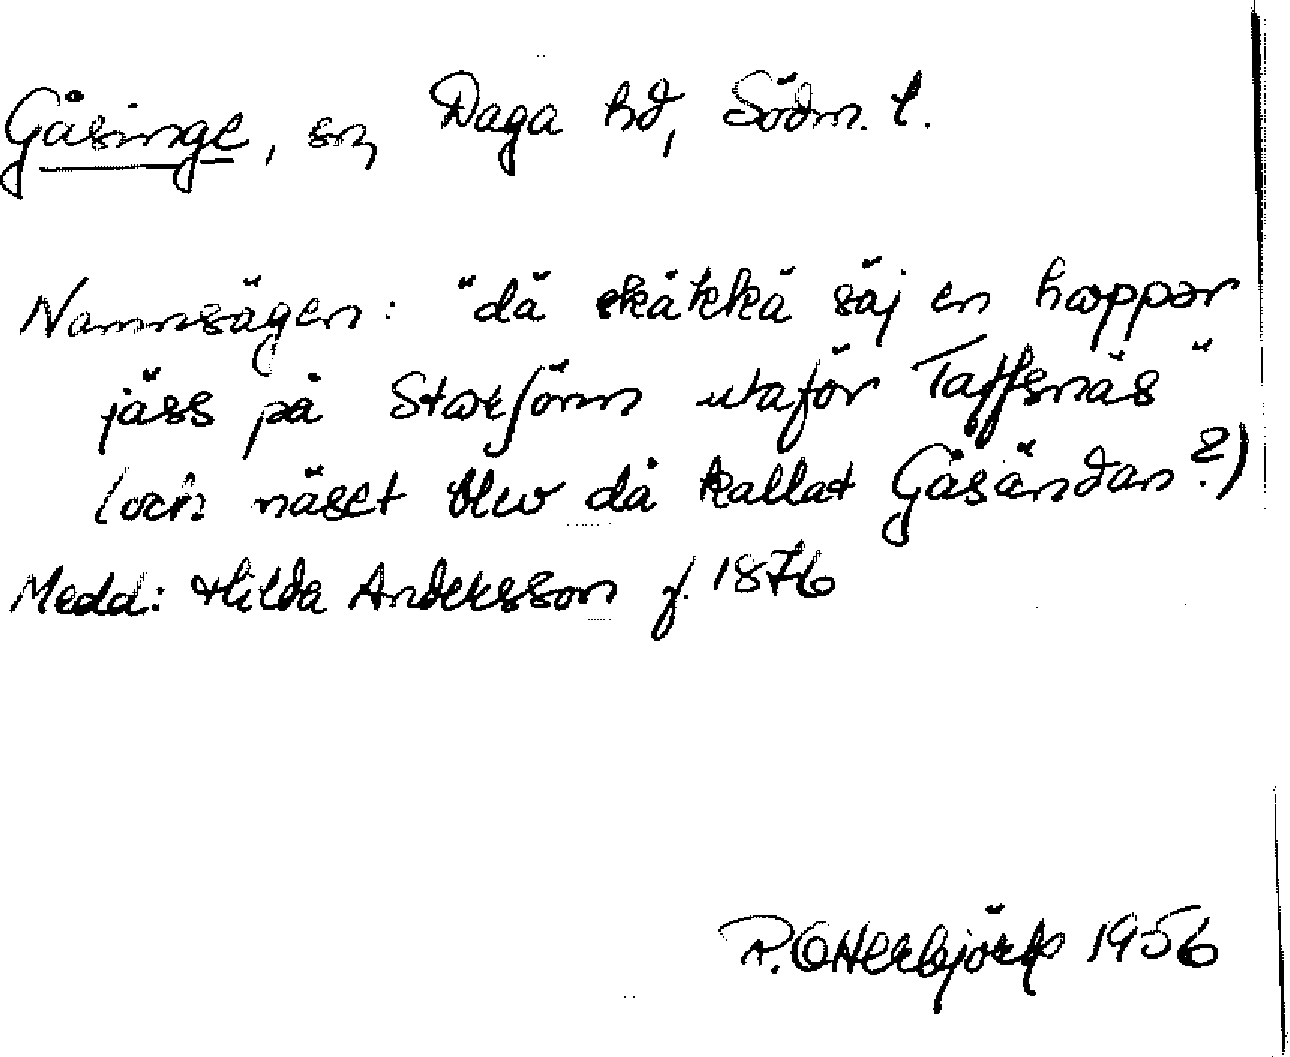 Gåsinge, sn, Daga hd, Södm. l.
Namnsägen: "dä skäkkä säj en hopper
jäss på Storsjönn utaför Taffsnäs"
(och näset blev då kallat Gåsändan?)
Medd: Hilda Andersson f. 1876
R. Otterbjörk 1956